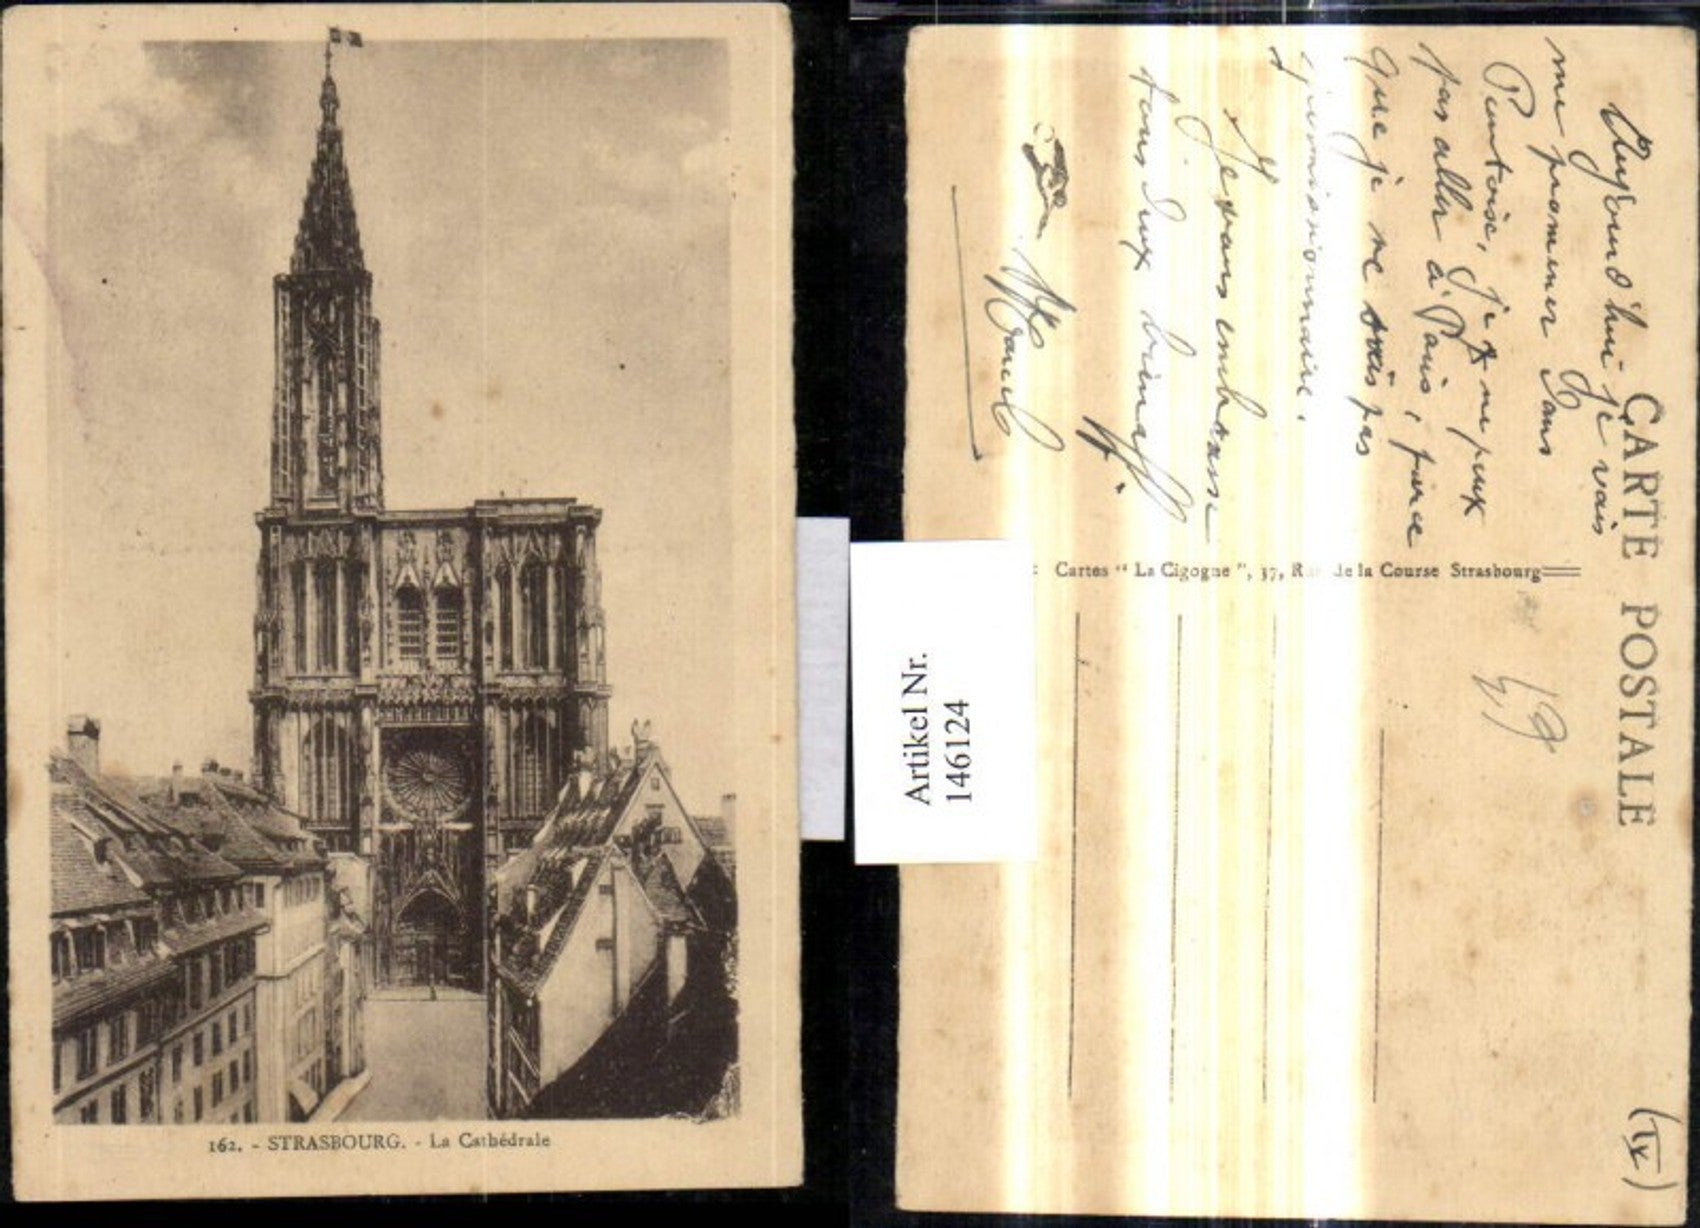 162. - STRASBOURG. - La Cathédrale
Artikel Nr.
146124
CARTE POSTALE
Aujourd'hui je vais
me promener dans
Pontoise, je ne peux
pas aller à Paris, parce
que je ne suis pas
permissionnaire.
Je vous embrasse
tous deux bien aff.
Marcel
Cartes " La Cigogne ", 37, Rue de la Course Strasbourg
49
(IX)